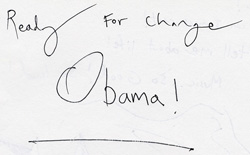 Ready For Change
Obama!